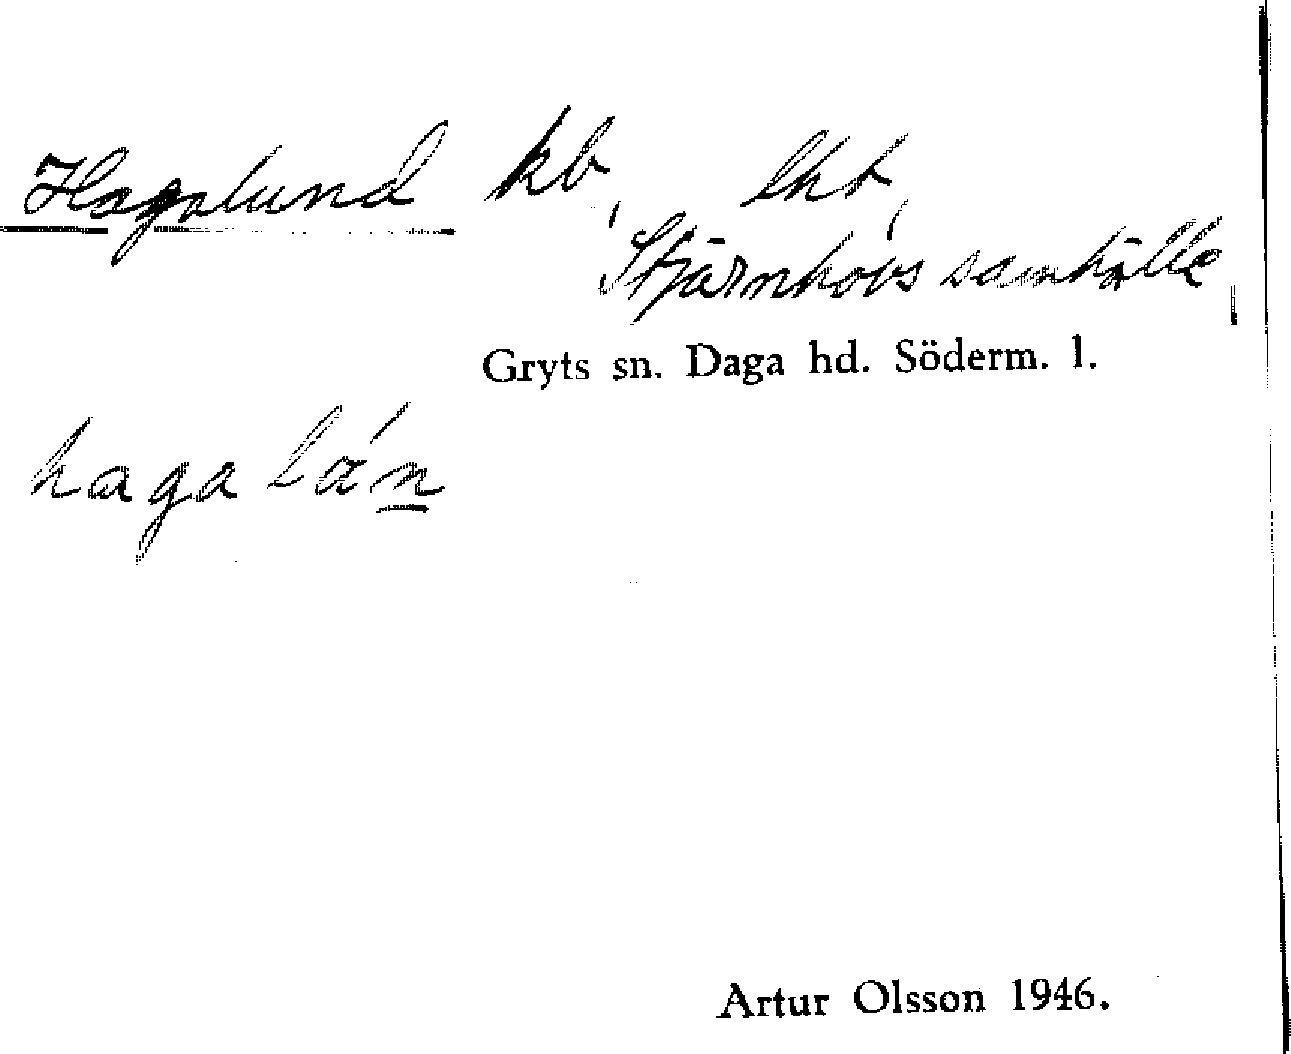 Hagalund kb, lht,
Stjärnhovs samhälle
Gryts sn. Daga hd. Söderm. l.
haga lán
Artur Olsson 1946.